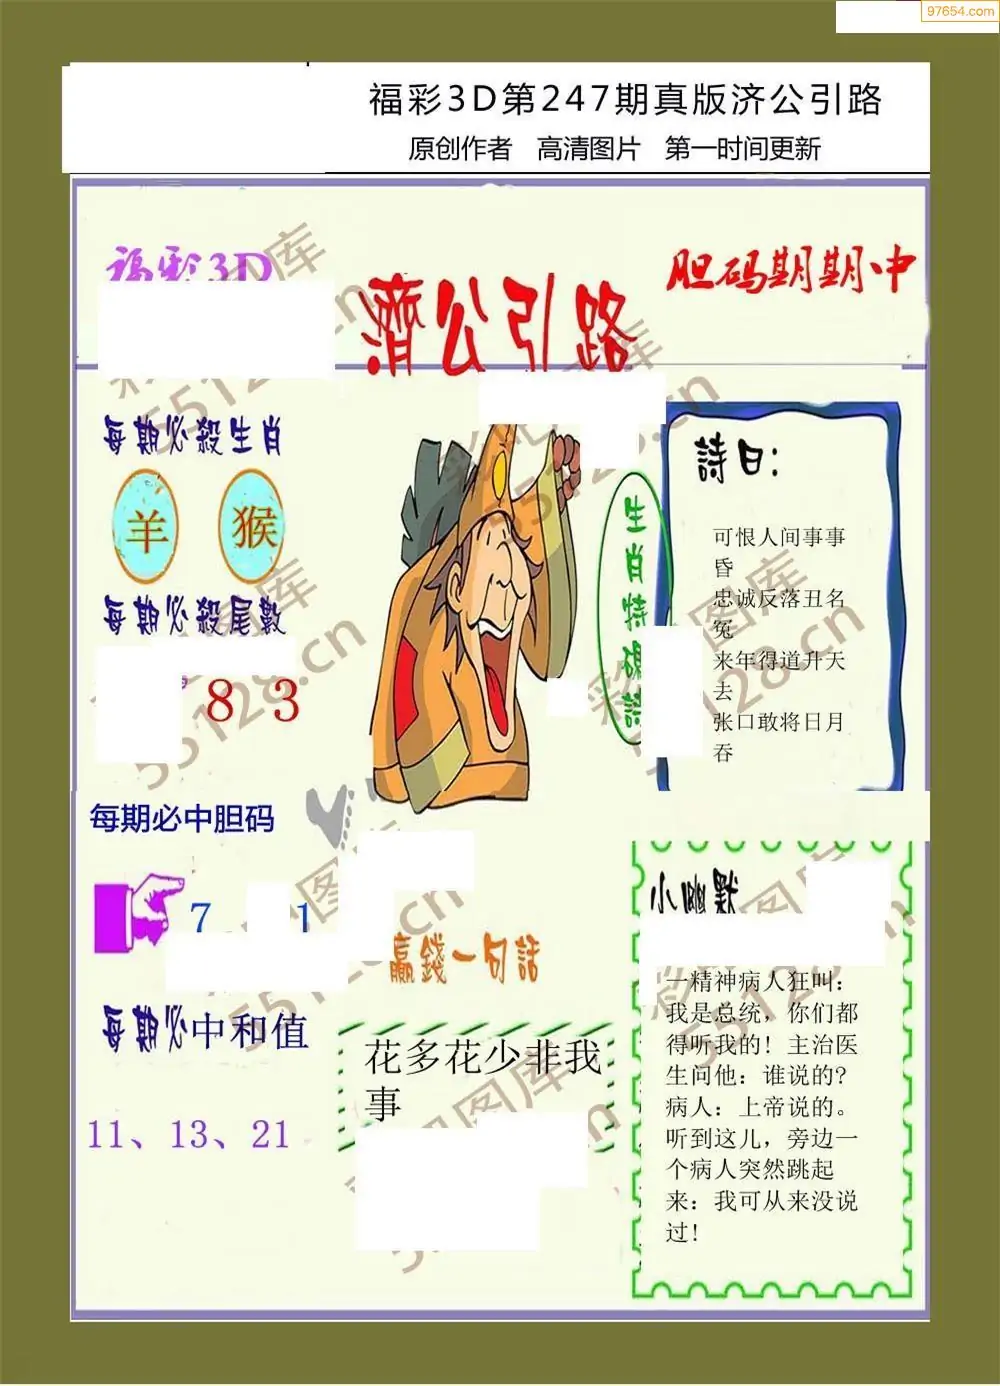 97654.com
福彩3D第247期真版济公引路
原创作者 高清图片 第一时间更新
福彩3D
濟公引路
胆码期期中
每期必殺生肖
羊 猴
每期必殺尾數
8 3
每期必中胆码
7 1
每期必中和值
11、13、21
生肖特碼詩
詩曰:
可恨人间事事
昏
忠诚反落丑名
冤
来年得道升天
去
张口敢将日月
吞
赢錢一句話
花多花少非我
事
小幽默
一精神病人狂叫:
我是总统，你们都
得听我的! 主治医
生问他: 谁说的?
病人: 上帝说的。
听到这儿，旁边一
个病人突然跳起
来: 我可从来没说
过!
彩吧图库
55128.cn